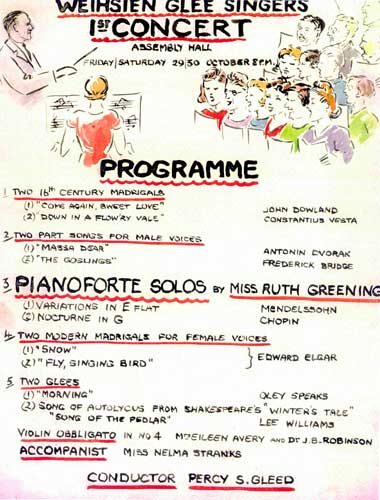 WEIHSIEN GLEE SINGERS
1ST CONCERT
ASSEMBLY HALL
FRIDAY/SATURDAY 29/30 OCTOBER 8 P.M.
PROGRAMME
1. TWO 16th CENTURY MADRIGALS
(1) "COME AGAIN, SWEET LOVE" JOHN DOWLAND
(2) "DOWN IN A FLOW'RY VALE" CONSTANTIUS VESTA
2. TWO PART SONGS FOR MALE VOICES
(1) "MASSA DEAR" ANTONIN DVORAK
(2) "THE GOSLINGS" FREDERICK BRIDGE
3. PIANOFORTE SOLOS BY MISS RUTH GREENING
(1) VARIATIONS IN E FLAT MENDELSSOHN
(2) NOCTURNE IN G CHOPIN
4. TWO MODERN MADRIGALS FOR FEMALE VOICES
(1) "SNOW"
(2) "FLY, SINGING BIRD" } EDWARD ELGAR
5. TWO GLEES
(1) "MORNING" OLEY SPEAKS
(2) SONG OF AUTOLYCUS FROM SHAKESPEARE'S "WINTER'S TALE"
"SONG OF THE PEDLAR" LEE WILLIAMS
VIOLIN OBBLIGATO IN NO 4 MRS EILEEN AVERY AND DR J.B. ROBINSON
ACCOMPANIST MISS NELMA STRANKS
CONDUCTOR PERCY S. GLEED